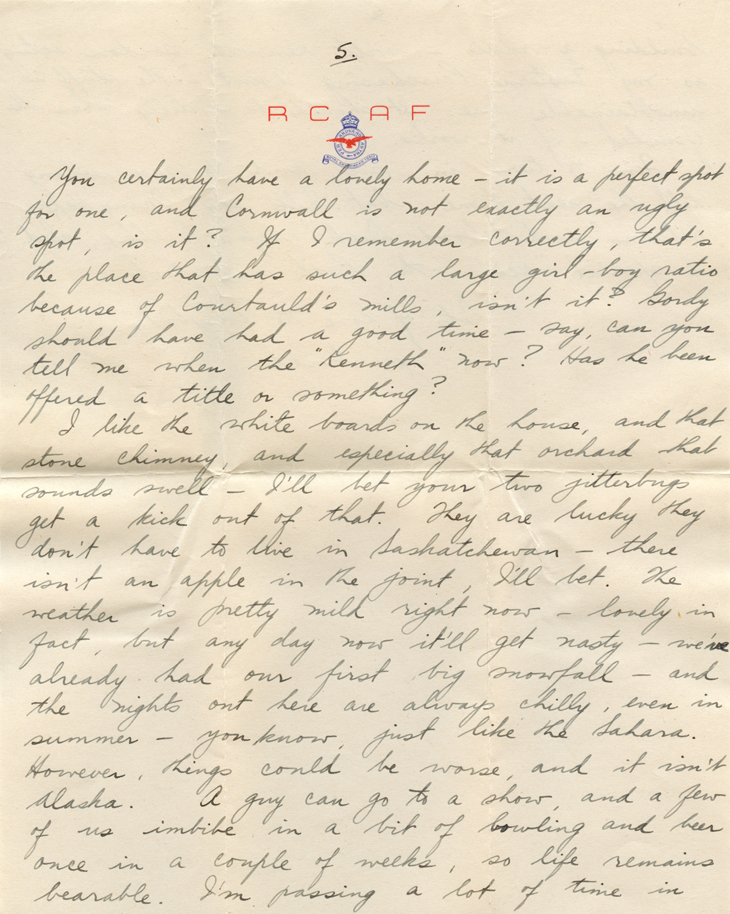 5.
RCAF
You certainly have a lovely home – it is a perfect spot
for one, and Cornwall is not exactly an ugly
spot, is it? If I remember correctly, that's
the place that has such a large girl-boy ratio
because of Courtauld's mills, isn't it? Gordy
should have had a good time – say, can you
tell me when the "Kenneth" now? Has he been
offered a title or something?
I like the white boards on the house, and that
stone chimney, and especially that orchard that
sounds swell – I'll bet your two jitterbugs
get a kick out of that. They are lucky they
don't have to live in Saskatchewan – there
isn't an apple in the joint, I'll bet. The
weather is pretty mild right now – lovely in
fact, but any day now it'll get nasty – we've
already had our first big snowfall – and
the nights out here are always chilly, even in
summer – you know, just like the Sahara.
However, things could be worse, and it isn't
Alaska. A guy can go to a show, and a few
of us imbibe in a bit of bowling and beer
once in a couple of weeks, so life remains
bearable. I'm passing a lot of time in